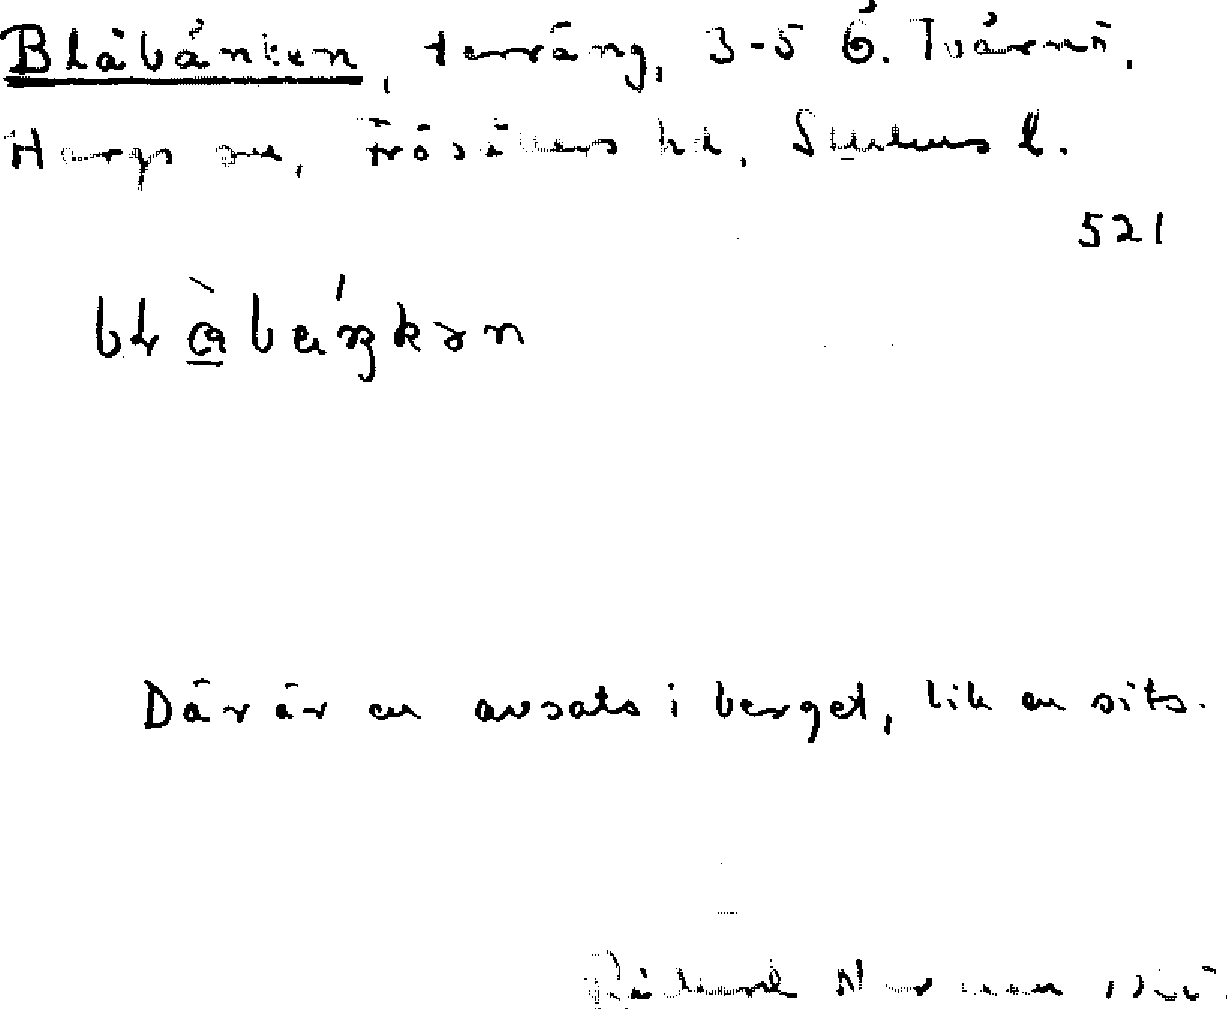 Blåbänken, terräng, 3-5 Ö. Tvärnö.
Hargs sn, Frösåkers hd, Stockholms l.
521
Där är en avsats i berget, lik en sits.
Rickard Norman